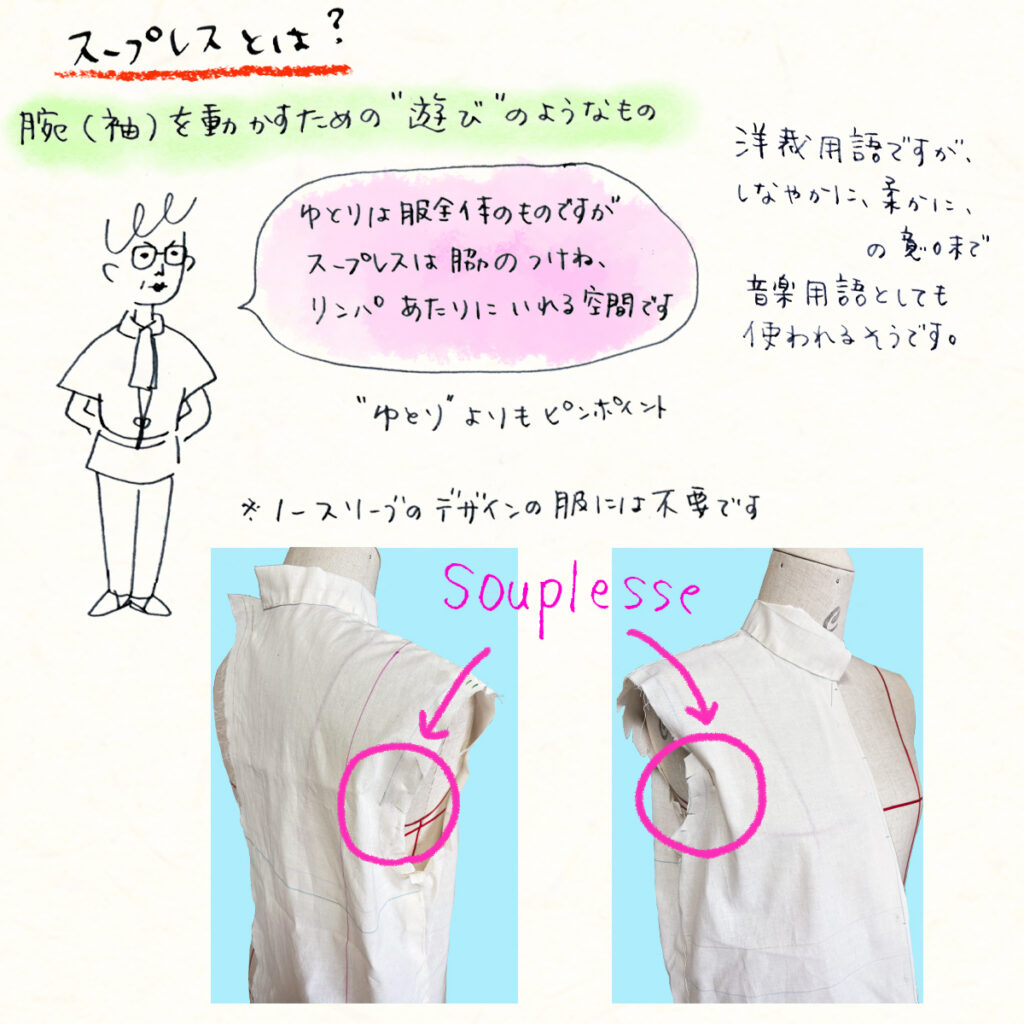 スープレスとは？
腕(袖)を動かすための"遊び"のようなもの
洋裁用語ですが、
しなやかに、柔かに、
の意味まで
音楽用語としても
使われるそうです。
ゆとりは服全体のものですが
スープレスは脇のつけね、
リンパあたりにいれる空間です
"ゆとり"よりもピンポイント
※ノースリーブのデザインの服には不要です
souplesse